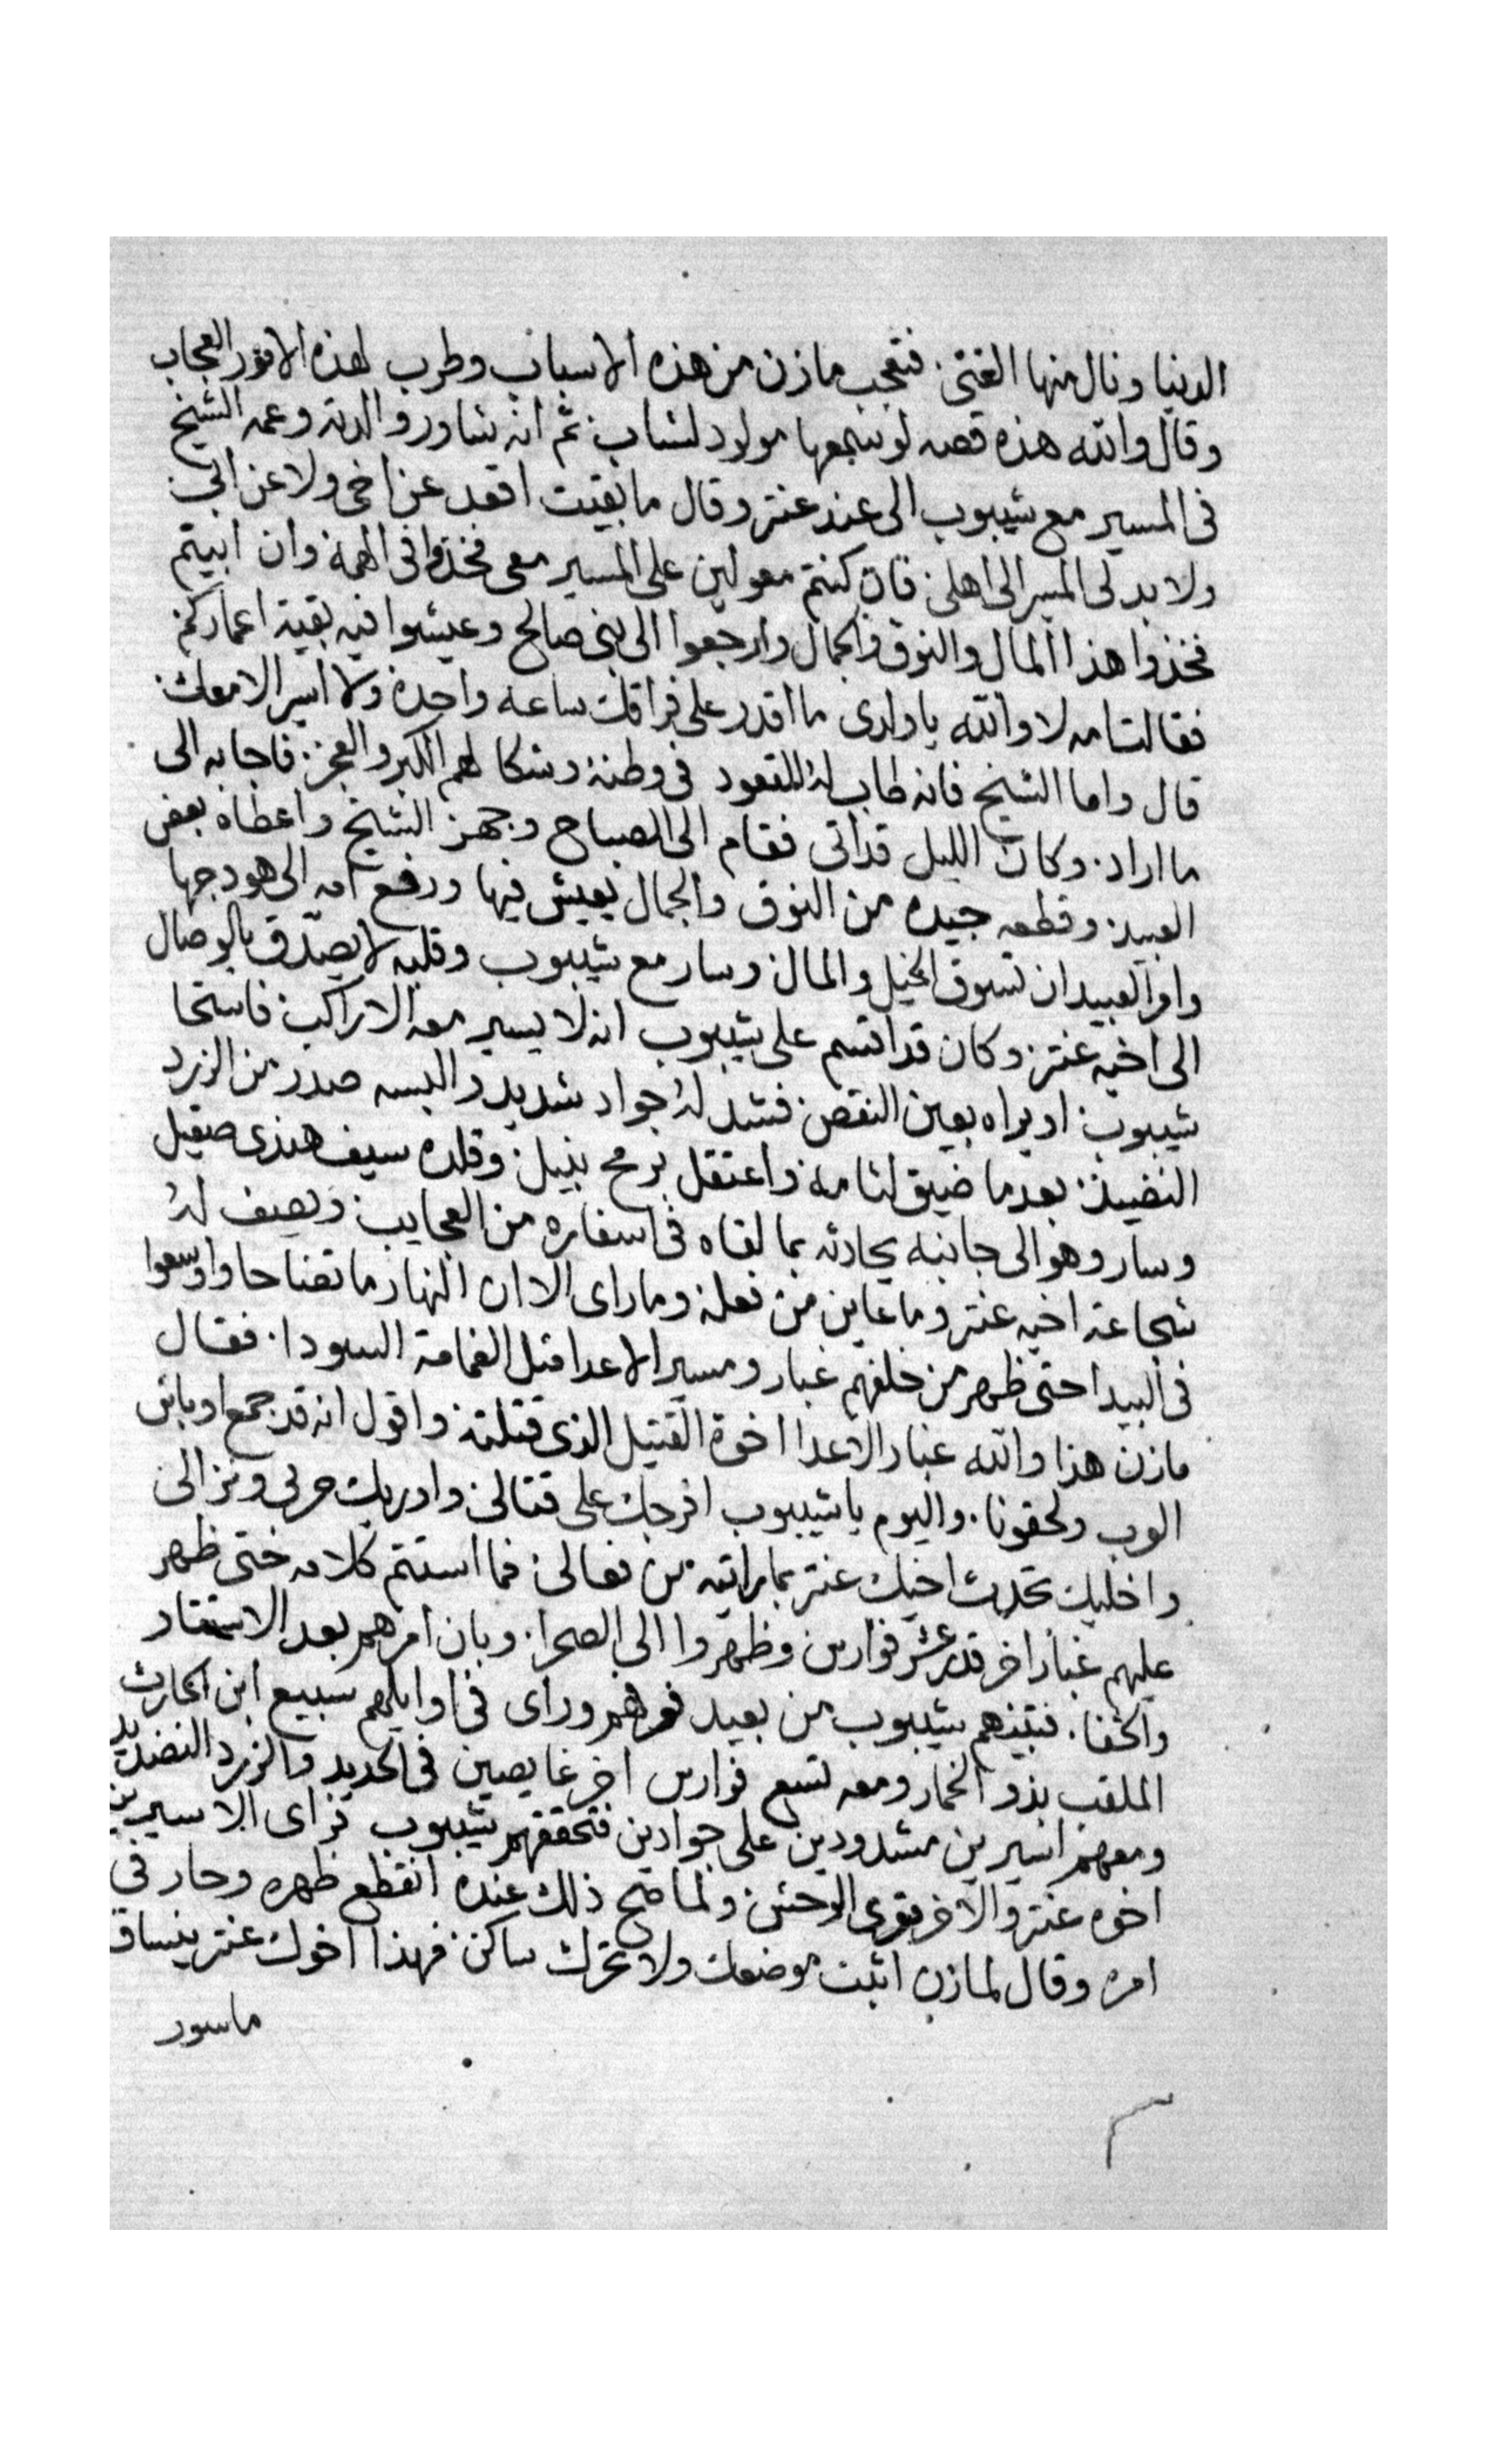 الدنيا ونال منها الغنى. فتعجب مازن من هذه الاسباب وطرب لهذه الامور العجاب
وقال والله هذه قصه لو سمعها مولود لشاب. ثم انه شاور والدته وعمه الشيخ
فى المسير مع شيبوب الى عند عنتر وقال ما بقيت اقعد عن اخى ولا عن ابى.
ولا بد لى المسير الى اهلى. فان كنتم معولين على المسير معى فخذوا فى الهمة وان ابيتم
فخذوا هذا المال والنوق والجمال وارجعوا الى بنى صالح وعيشوا فيه بقية اعماركم
فقالت امه لا والله يا ولدى ما اقدر على فراقك ساعه واحدة ولا اسير الا معك.
قال واما الشيخ فانه طاب له القعود فى وطنه وشكا لهم الكبر والعجز. فاجابه الى
ما اراد. وكان الليل قد اتى فقام الى الصباح وجهز الشيخ واعطاه بعض
العبيد. وقطعه جيده من النوق والجمال يعيش فيها ورفع امه الى هودجها
وامر العبيد ان تسوق الخيل والمال. وسار مع شيبوب وقلبه لا يصدق بالوصال
الى اخيه عنتر. وكان قد اقسم على شيبوب انه لا يسير معه الا راكب. فاستحا
شيبوب. ان يراه بعين النقص. فشد له جواد شديد والبسه صدر من الزرد
النضيد. بعد ما ضيق لثامه. واعتقل برمح نبيل. وقلده سيف هندى صقيل
وسار وهو الى جانبه يحادثه بما لقاه فى اسفاره من العجايب. ويصف له
شجاعة اخيه عنتر وما عاين من فعله وما راى الا ان النهار ما تضاحا واوسعوا
فى البيدا حتى ظهر من خلفهم غبار ومسير الاعدا مثل الغمامة السودا. فقال
مازن هذا والله غبار الاعدا اخوة القتيل الذى قتلته. واقول انه قد جمع اوباش
العرب ولحقونا. واليوم يا شيبوب افرجك على قتالى. واوريك حربى ونزالى
واخليك تحدث اخيك عنتر بما رايته من فعالى. فما استتم كلامه حتى ظهر
عليهم غبار اخر قدر عشر فوارس وظهروا الى الصحرا. وبان امرهم بعد الاستتار
والخفا. فتبينهم شيبوب من بعيد فعرفهم وراى فى اوايلهم سبيع ابن الحارث
الملقب بذو الخمار ومعه تسع فوارس اخر غايصين فى الحديد والزرد النضيد
ومعهم اسيرين مشدودين على جوادين فتحققهم شيبوب فراى الاسيرين
اخوه عنتر والاخر بقرى الوحش. ولما صح ذلك عنده انقطع ظهره وحار فى
امره وقال لمازن اثبت موضعك ولا تحرك ساكن. فهذا اخوك عنتر ينساق
ماسور